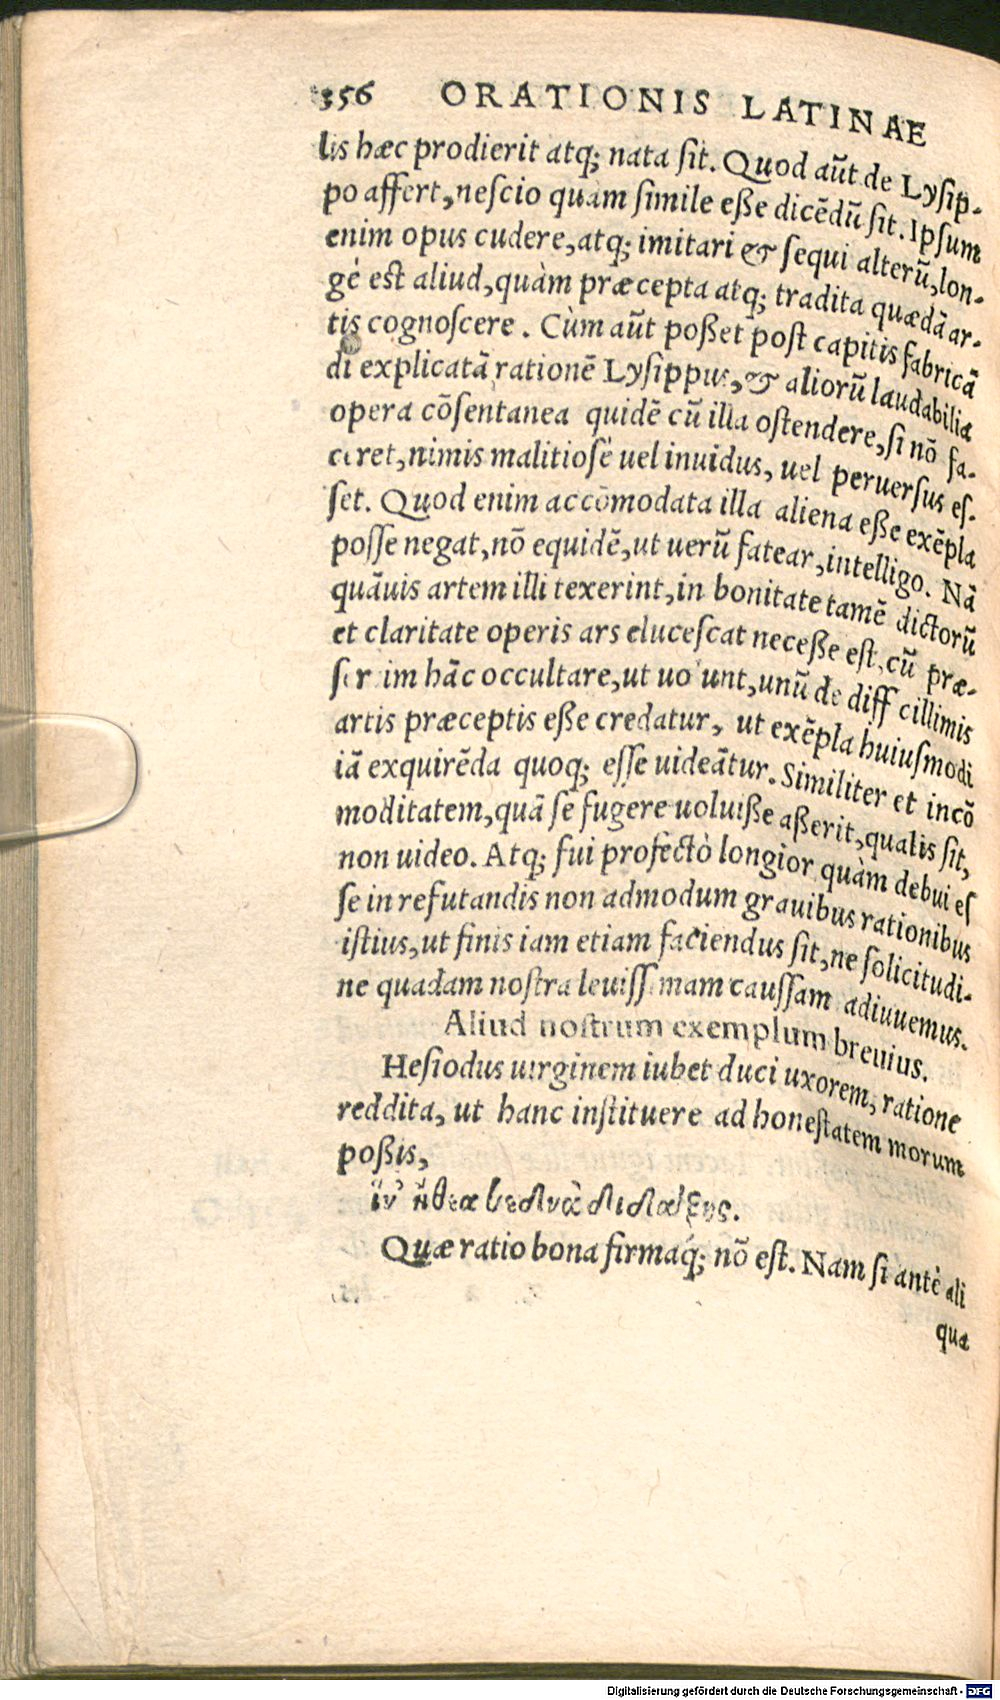 356 ORATIONIS LATINAE
lis hæc prodierit atq; nata sit. Quod aũt de Lysip-
po affert, nescio quam simile eße dicẽdũ sit. Ipsum
enim opus cudere, atq; imitari & sequi alterũ, lon-
gè est aliud, quàm præcepta atq; tradita quædã ar-
tis cognoscere. Cùm aũt poßet post capitis fabricã
di explicatã rationẽ Lysippus, & aliorũ laudabilia
opera cõsentanea quidẽ cũ illa ostendere, si nõ fa-
ceret, nimis malitiosè uel inuidus, uel peruersus es-
set. Quod enim accõmodata illa aliena eße exẽpla
posse negat, nõ equidẽ, ut uerũ fatear, intelligo. Nã
quãuis artem illi texerint, in bonitate tamẽ dictorũ
et claritate operis ars elucescat neceße est, cũ præ-
sertim hãc occultare, ut uolunt, unũ de difficillimis
artis præceptis eße credatur, ut exẽpla huiusmodi
iã exquirẽda quoq; esse uideãtur. Similiter et incõ
moditatem, quã se fugere uoluiße aßerit, qualis sit,
non uideo. Atq; fui profectò longior quàm debui es
se in refutandis non admodum grauibus rationibus
istius, ut finis iam etiam faciendus sit, ne solicitudi-
ne quadam nostra leuissimam caussam adiuuemus.
Aliud nostrum exemplum breuius.
Hesiodus uirginem iubet duci uxorem, ratione
reddita, ut hanc instituere ad honestatem morum
poßis,
ἵν' ἤθεα κεδνὰ διδάξῃς.
Quæ ratio bona firmaq; nõ est. Nam si antè ali
quæ
Digitalisierung gefördert durch die Deutsche Forschungsgemeinschaft - DFG